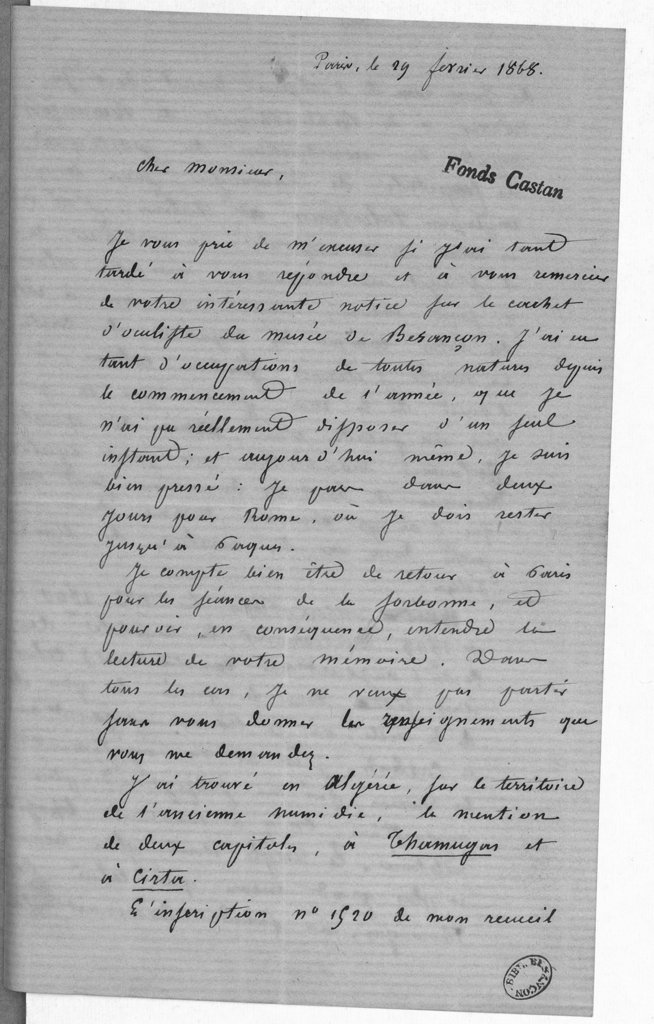 Paris, le 29 fevrier 1868.
Cher Monsieur,
Fonds Castan
Je vous prie de m'excuser si j'ai tant
tardé à vous répondre et à vous remercier
de votre intéressante notice sur le cachet
d'oculiste du musée de Besançon. J'ai eu
tant d'occupations de toutes natures depuis
le commencement de l'année, que je
n'ai pu réellement disposer d'un seul
instant; et aujourd'hui même, je suis
bien pressé : je pars dans deux
jours pour Rome, où je dois rester
jusqu'à Paques.
Je compte bien être de retour à Paris
pour les séances de la Sorbonne, et
pouvoir, en conséquence, entendre la
lecture de votre mémoire. Dans
tous les cas, je ne veux pas partir
sans vous donner les renseignements que
vous me demandez.
J'ai trouvé en Algérie, sur le territoire
de l'ancienne Numidie, la mention
de deux capitoles, à Thamugas et
à Cirta.
L'inscription n° 1520 de mon recueil
BIBL. BESANÇON